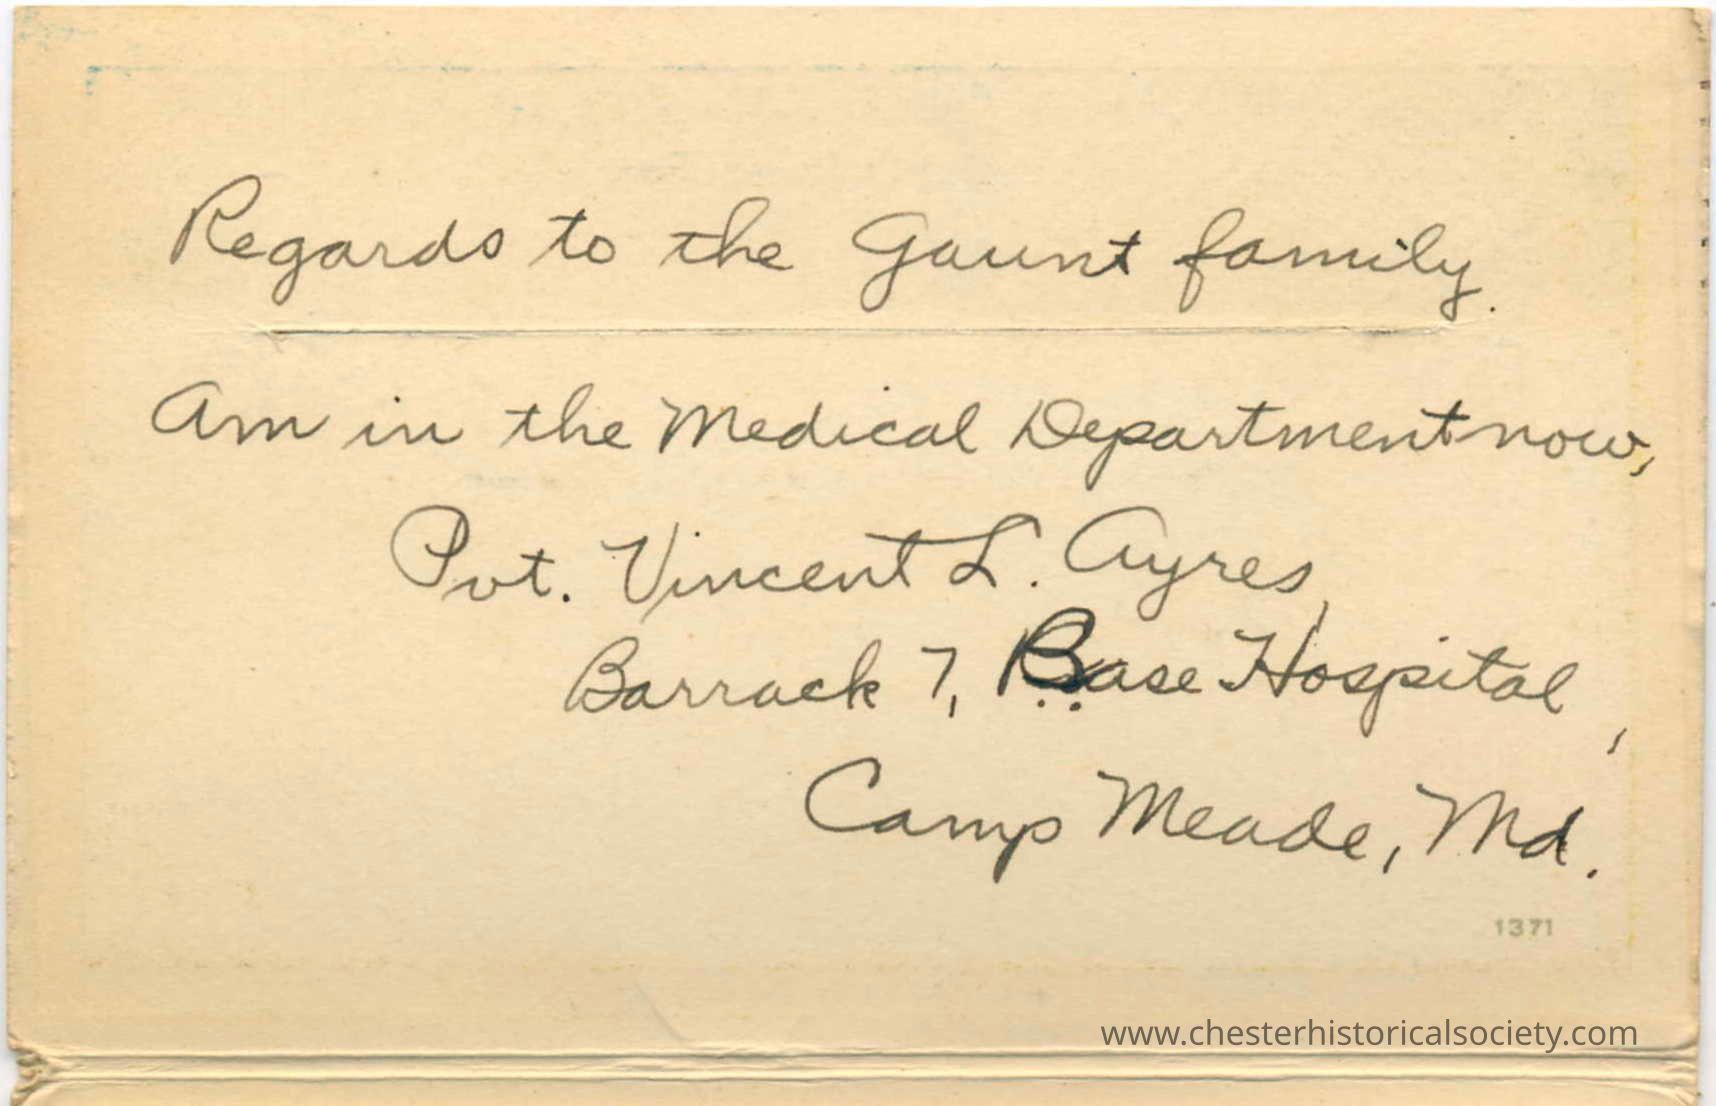 Regards to the Gaunt family.
Am in the Medical Department now,
Pvt. Vincent L. Ayres,
Barrack 7, Base Hospital,
Camp Meade, Md.
1371
www.chesterhistoricalsociety.com